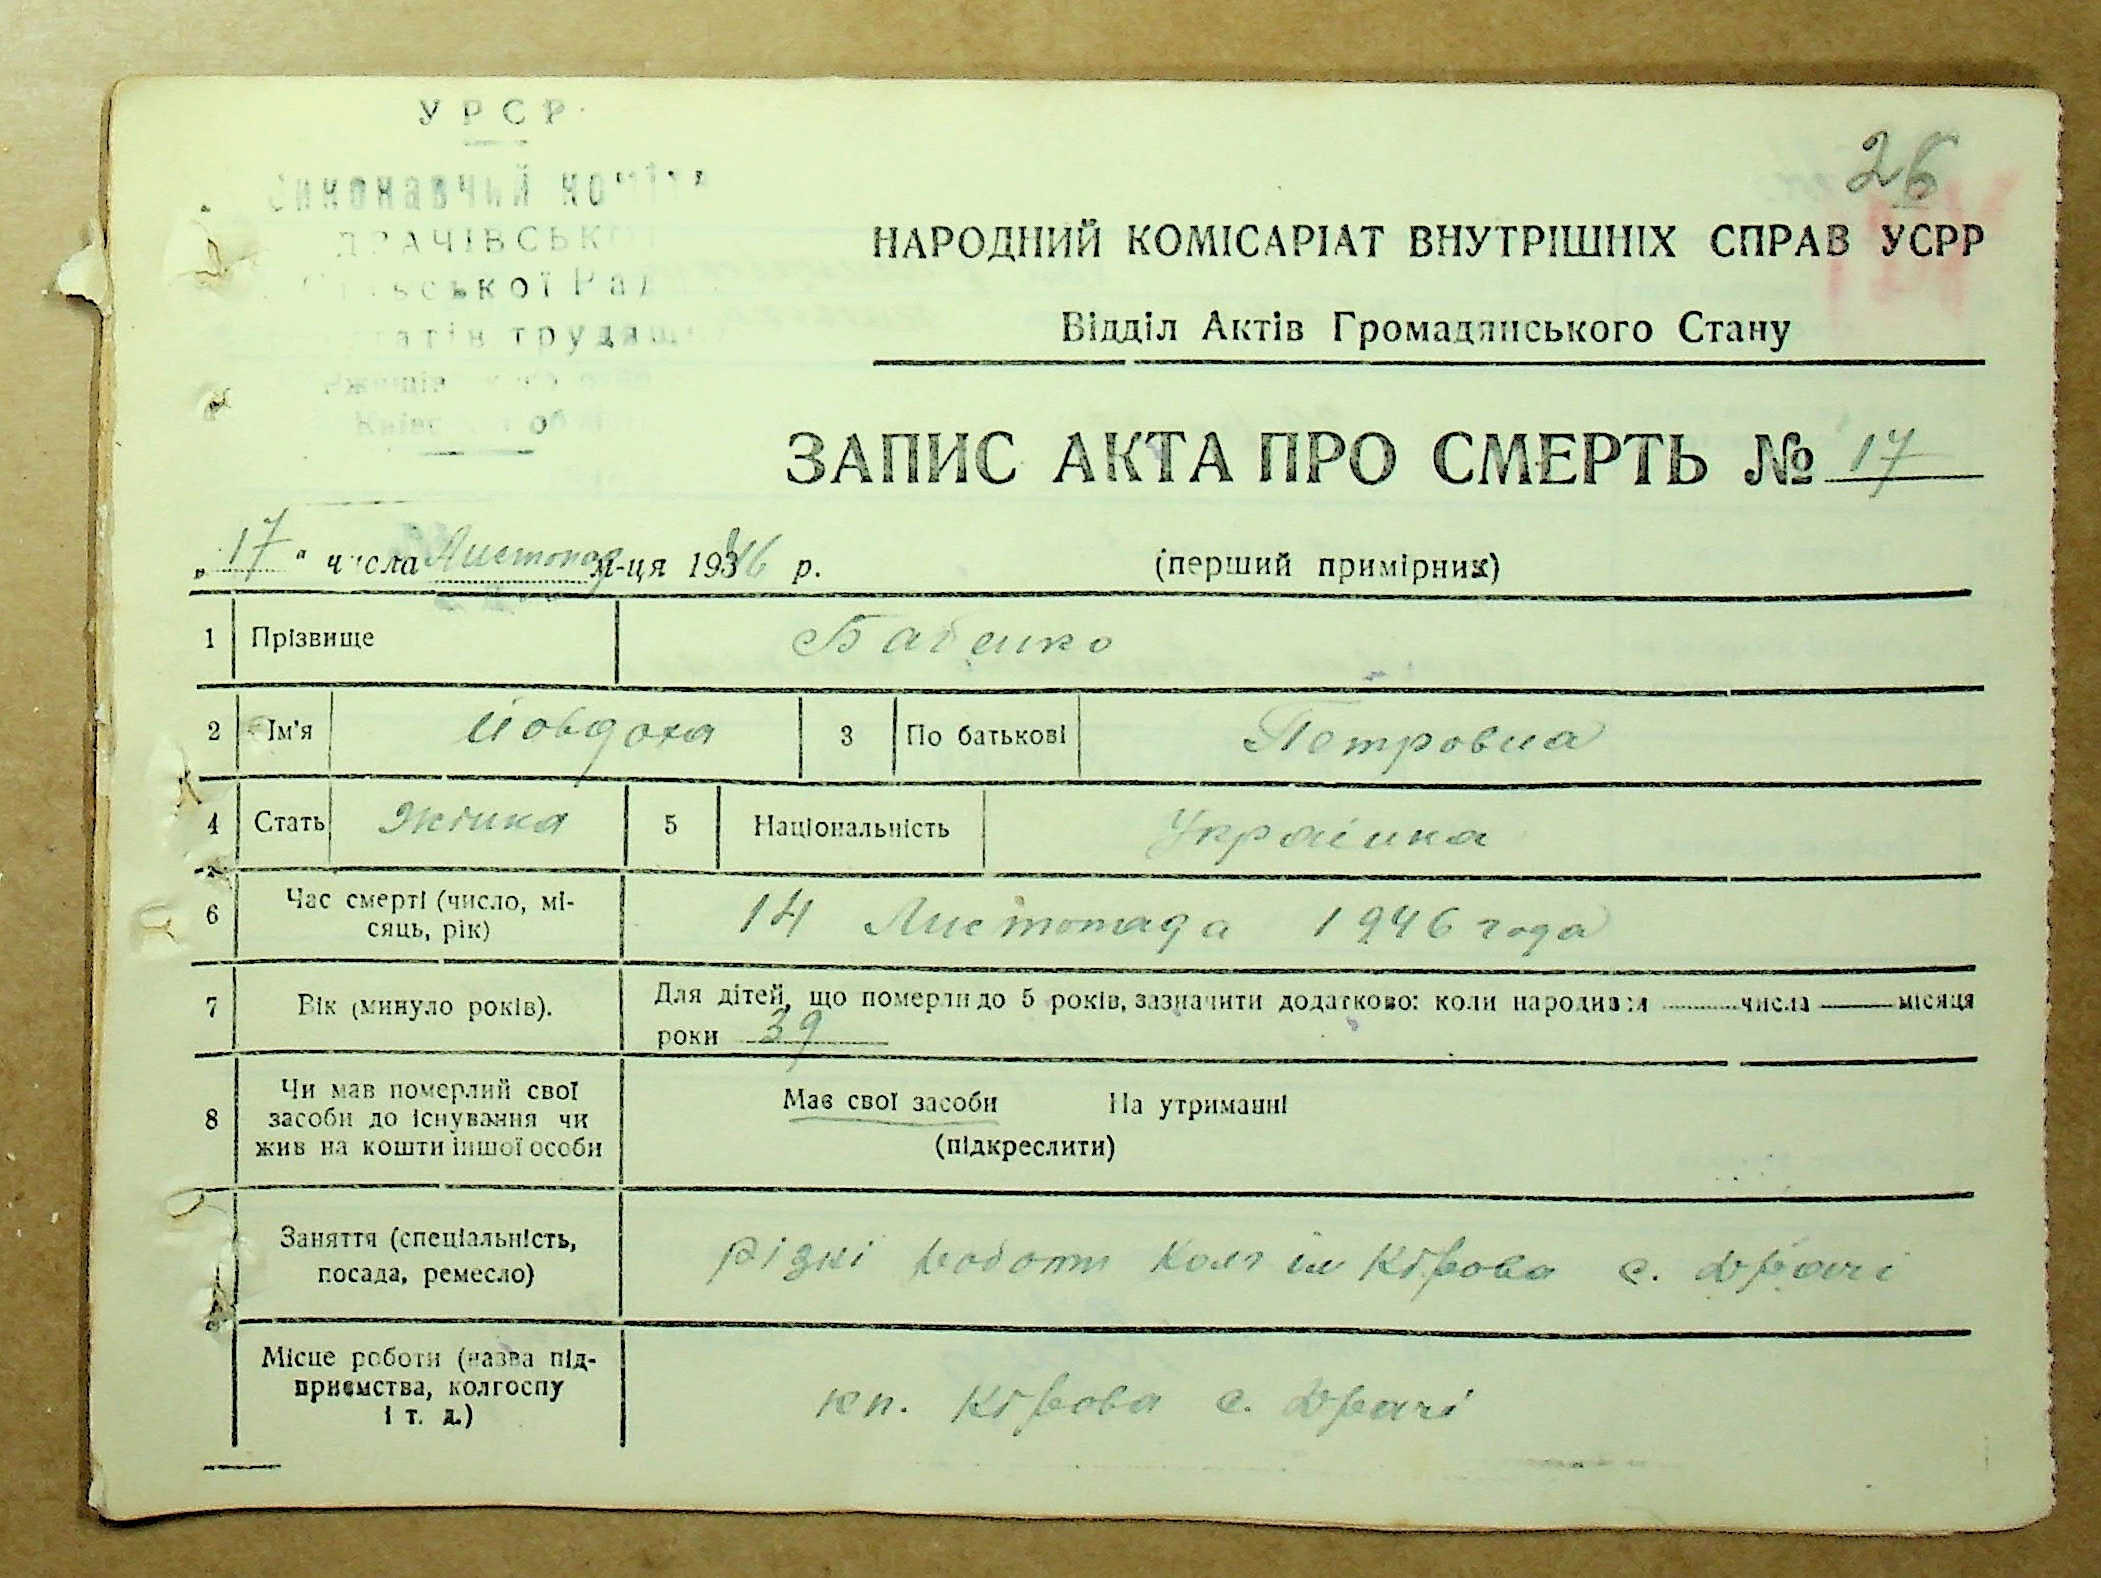 УРСР
26
НАРОДНИЙ КОМІСАРІАТ ВНУТРІШНІХ СПРАВ УСРР
Відділ Актів Громадянського Стану
ЗАПИС АКТА ПРО СМЕРТЬ № 17
„17“ числа Листопад м-ця 1946 р.
(перший примірник)
1 Прізвище Бабенко
2 Ім'я Йовдоха 3 По батькові Петровна
4 Стать Жінка 5 Національність Українка
6 Час смерті (число, мі-
сяць, рік) 14 Листопада 1946 года
7 Вік (минуло років). Для дітей, що померли до 5 років, зазначити додатково: коли народився числа місяця
роки 39
8 Чи мав померлий свої
засоби до існування чи
жив на кошти іншої особи
Має свої засоби На утриманні
(підкреслити)
Заняття (спеціальність,
посада, ремесло) різні роботи Колг ім Кірова с. Драчі
Місце роботи (назва під-
приємства, колгоспу
і т. д.)
кп. Кірова с. Драчі